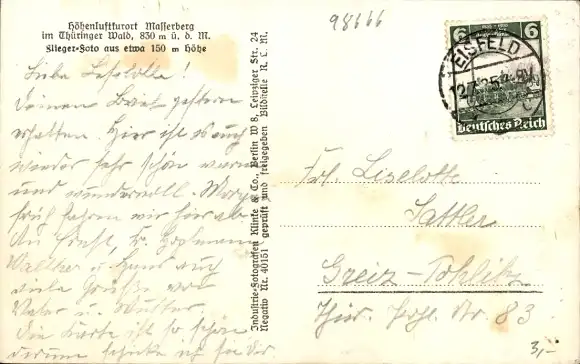 Höhenluftkurort Masserberg
im Thüringer Wald, 830 m ü. d. M.
Flieger-Foto aus etwa 150 m Höhe
98666
6 6
EISFELD
12.7.35
Deutsches Reich
Liebe Liselotte!
Deinen Brief gestern
erhalten. Hier ist es auch
wieder sehr schön warm
und wundervoll.
früh fahren wir hier ab.
An
Walther u. Hans auch
viele Grüße von
Vater u. Mutter.
Die Karte ist so schön
darum
Industrie-Fotografen Klinke & Co., Berlin W 8, Leipziger Str. 24
Negativ Nr. 40151 geprüft und freigegeben Bildstelle R. L. M.
Frl. Liselotte
Sattler
Greiz-Pohlitz
Thür. Str. 83
3,-